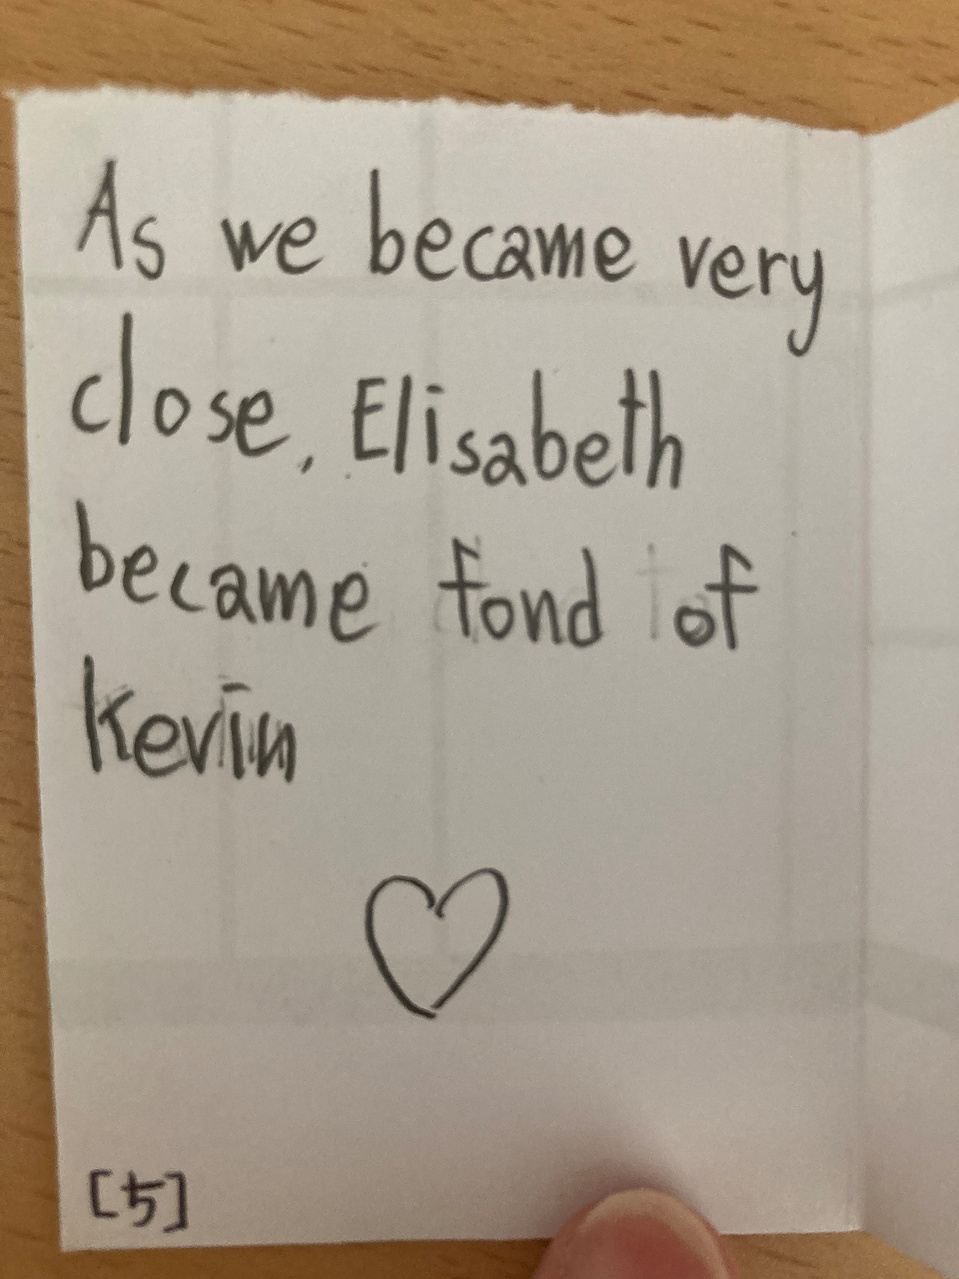 As we became very
close, Elisabeth
became fond of
Kevin
[5]